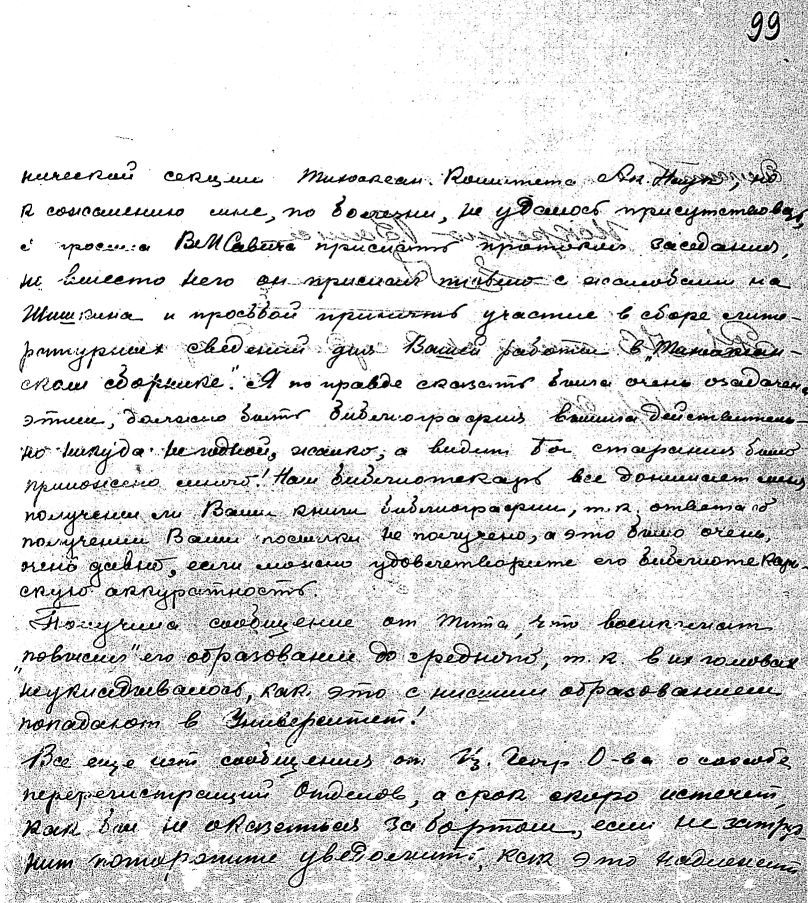 99
нической секции Тихоокеан. Комитета Ак. Наук, но
к сожалению мне, по болезни, не удалось присутствовать,
я просила В.М. Савича прислать протокол заседания,
но вместо него он прислал письмо с жалобами на
Шишкина и просьбой принять участие в сборе лите-
ратурных сведений для Вашей работы в "Тихоокеан-
ском сборнике". Я по правде сказать была очень озадачена
этим, должно быть библиография вышла действитель-
но никуда не годной, жалко, а видит Бог старания было
приложено много! Наш библиотекарь все донимает меня
получены ли Вами книги библиографии, т.к. ответа о
получении Вами посылки не получено, а это было очень,
очень давно, если можно удовлетворите его библиотекар-
скую аккуратность.
Получила сообщение от Тита, что военкомат
"повысил" его образование до среднего, т.к. в их головах
не укладывалось, как это с низшим образованием
попадают в Университет!
Все еще нет сообщения от Геогр. О-ва о способе
перерегистрации Отделов, а срок скоро истечет,
как бы не оказаться за бортом, если не затруд-
нит поторопите уведомить, как это надлежит